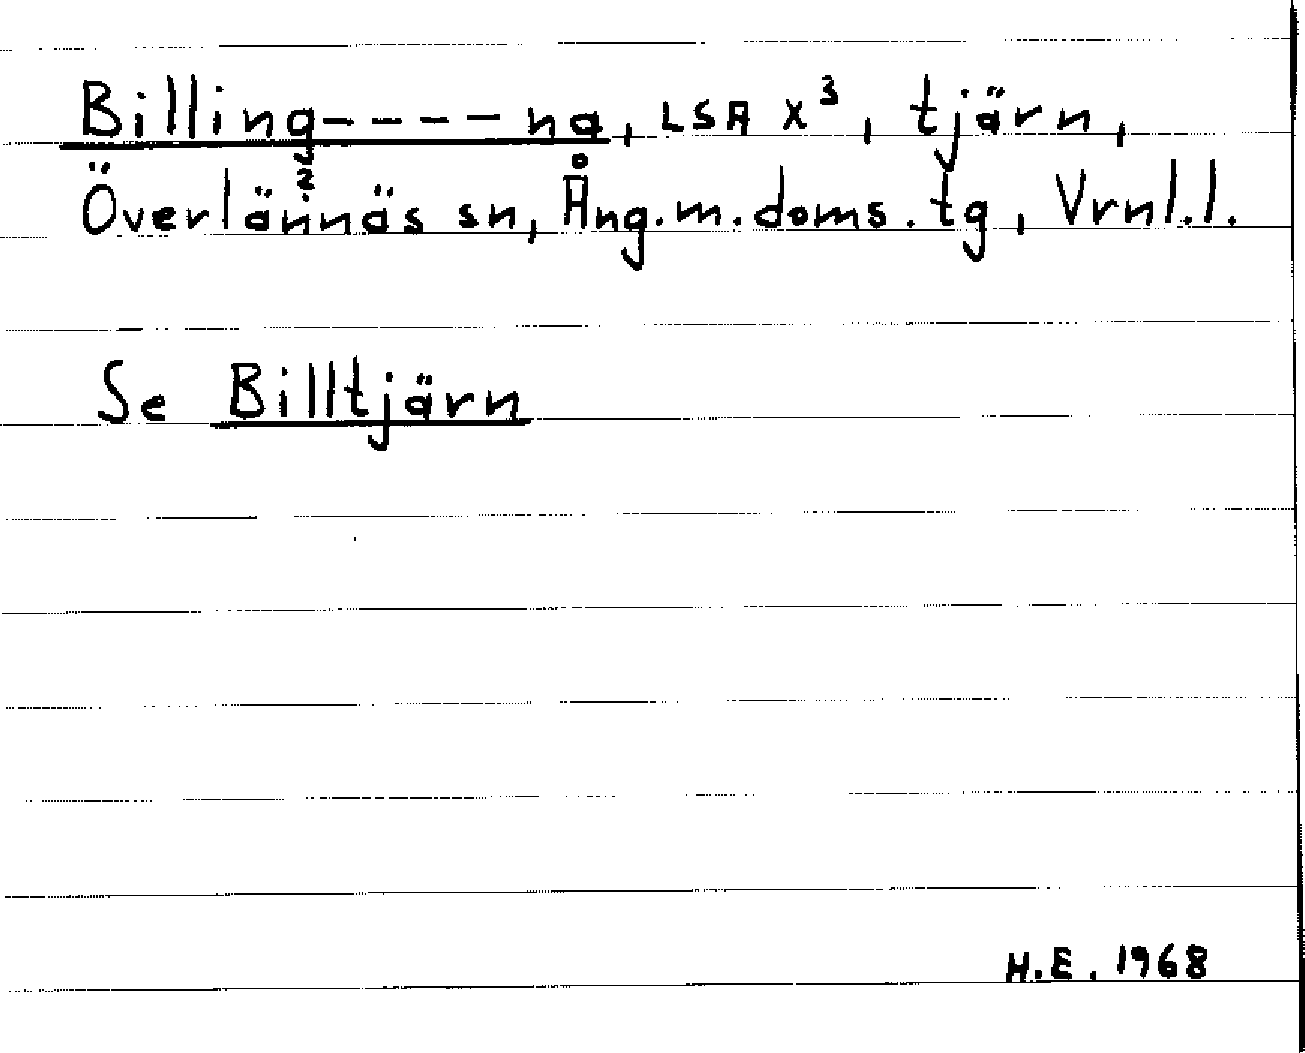 Billing----na, LSA X³, tjärn,
Överlännäs sn, Ång.m.doms.tg, Vrnl.l.
Se Billtjärn
H.E. 1968